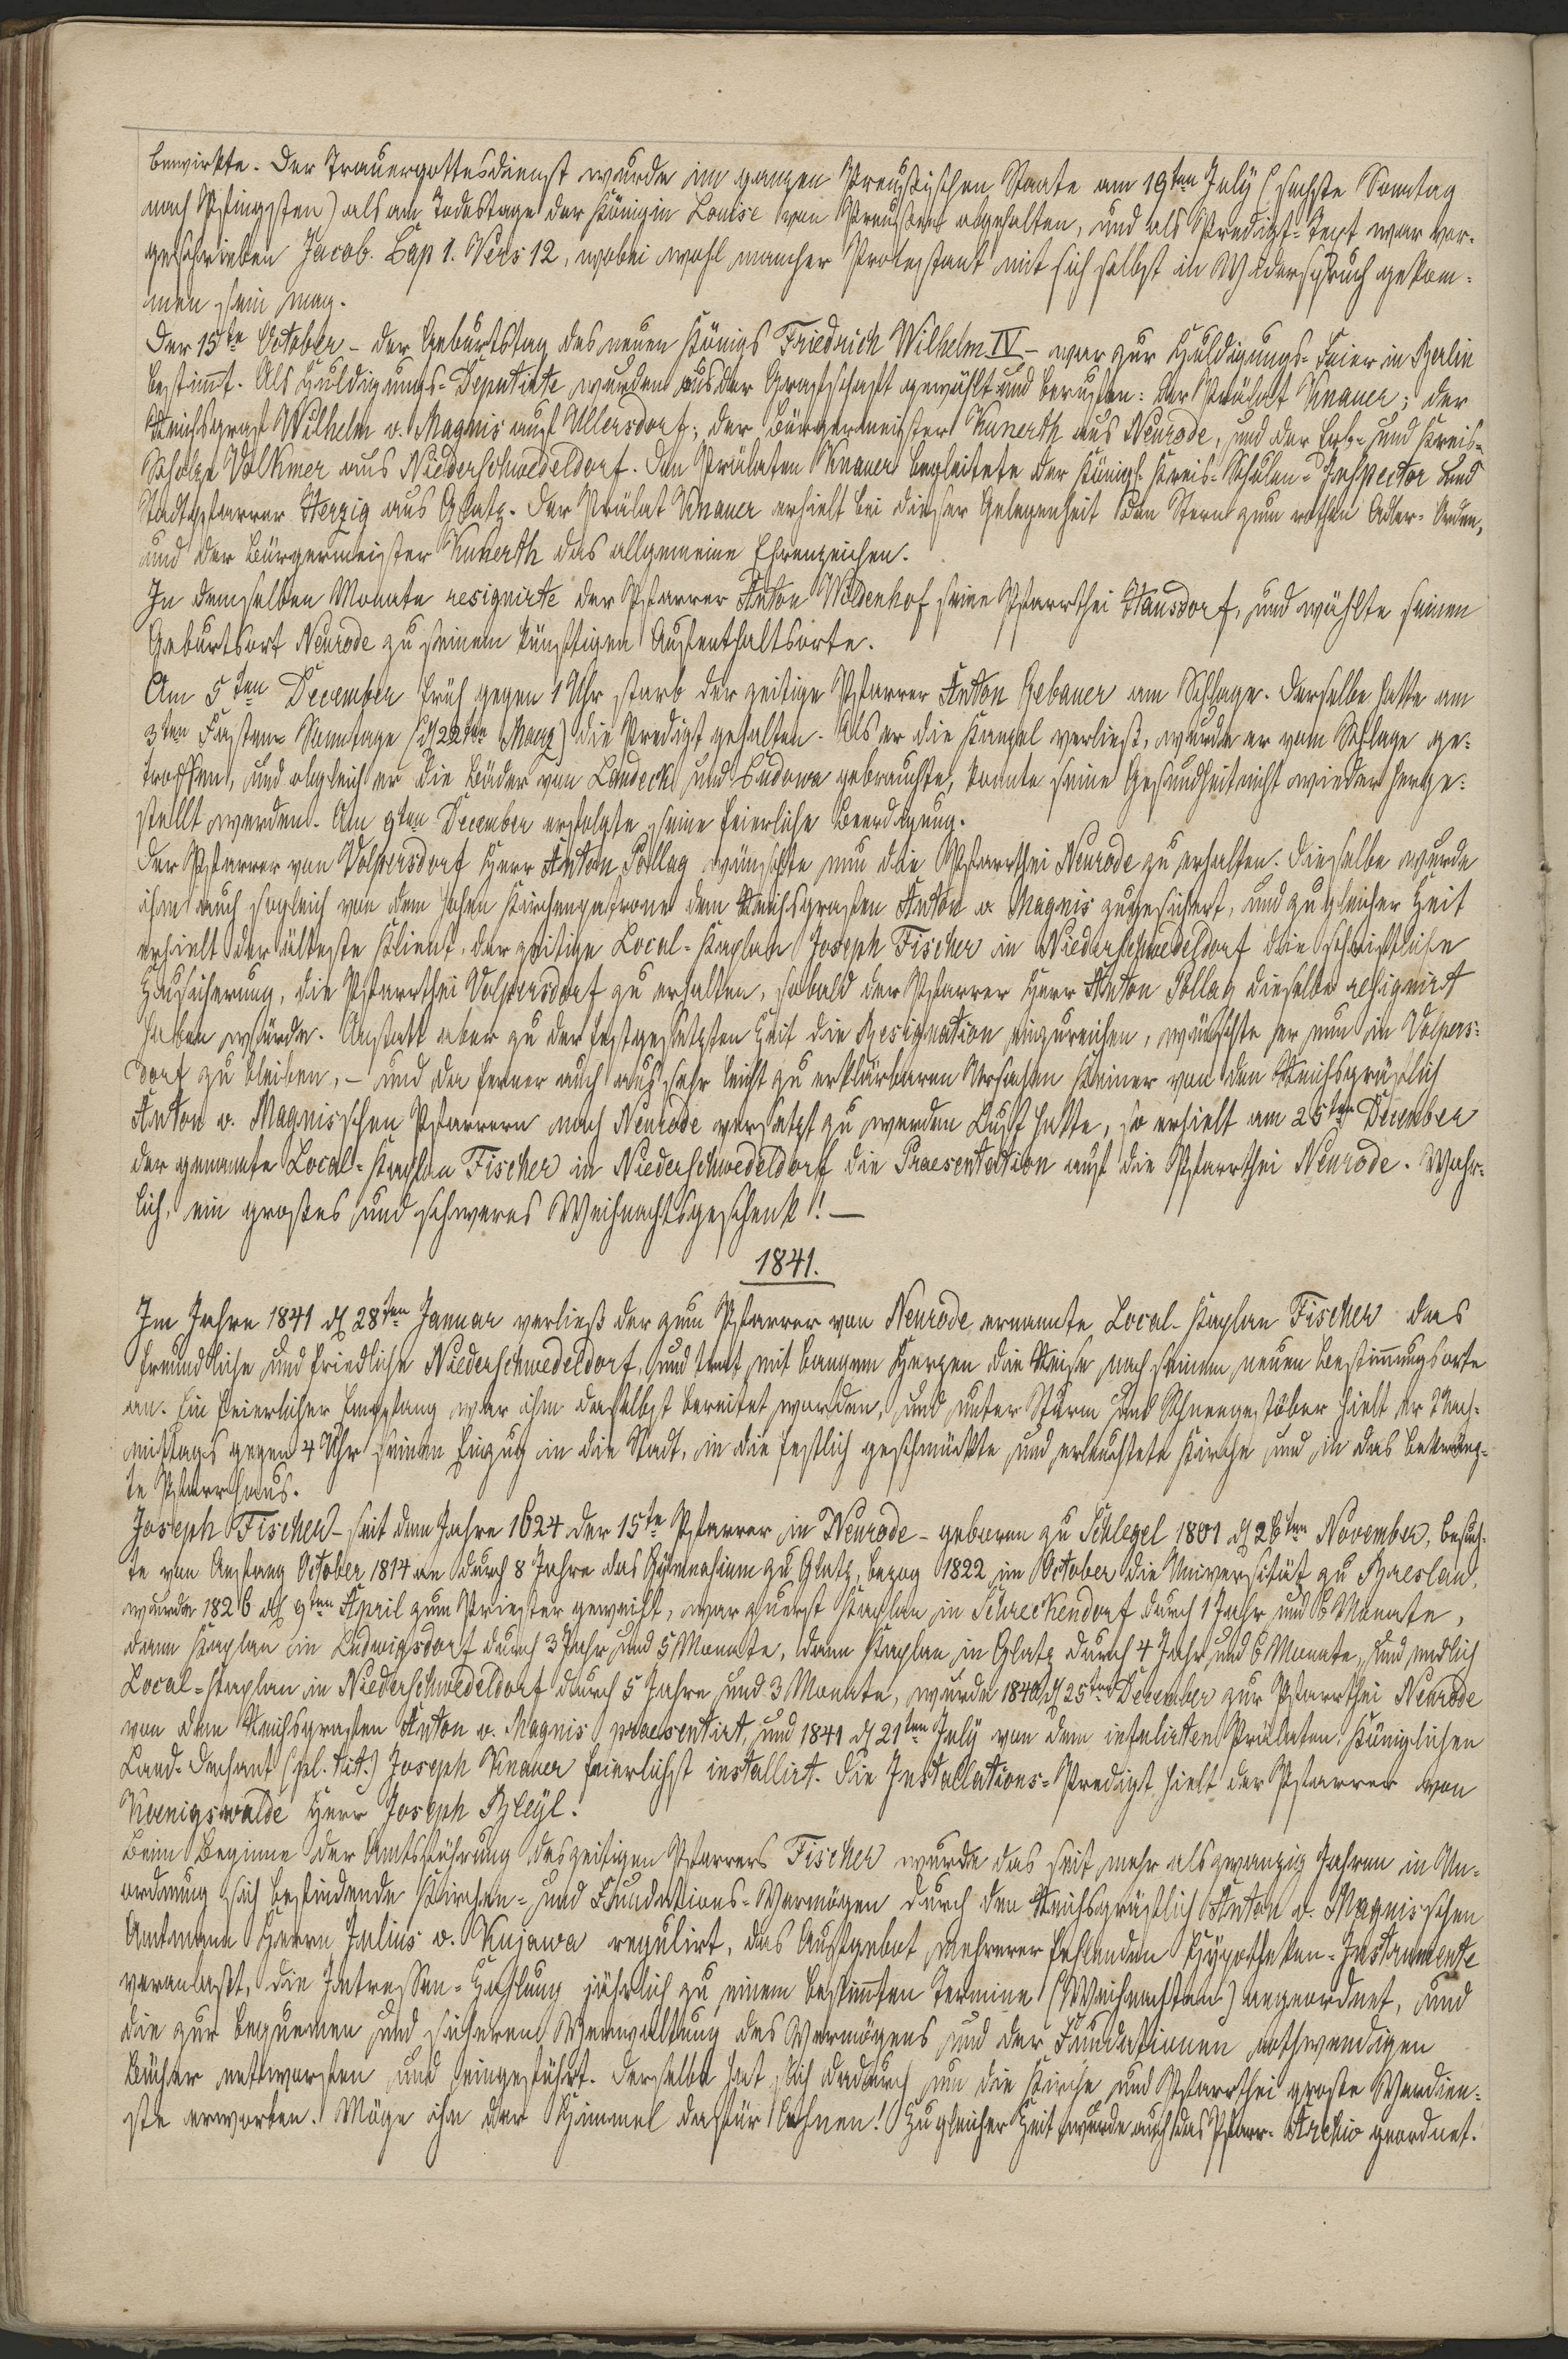 bewirkte. Der Trauergottesdienst wurde im ganzen Preußischen Staate am 19ten July (sechste Sonntag
nach Pfingsten) als am Todestage der Königin Louise von Preußen abgehalten, und als Predigt-Text war vor-
geschrieben Jacob. Cap 1. Vers 12, wobei wohl mancher Protestant mit sich selbst in Widerspruch gekom-
men sein mag.
Der 15te October – der Geburtstag des neuen Königs Friedrich Wilhelm IV – war zur Huldigungs-Feier in Berlin
bestimt. Als Huldigungs-Deputirte wurden aus der Grafschaft gewählt und berufen: der Prälat Knauer; der
Reichsgraf Wilhelm v. Magnis auf Ullersdorf; der Bürgermeister Kunerth aus Neurode, und der Erb- und Kreis-
Scholze Volkmer aus Niederschwedeldorf. Den Prälaten Knauer begleitete der Königl. Kreis-Schulen-Inspector und
Stadtpfarrer Herzig aus Glatz. Der Prälat Knauer erhielt bei dieser Gelegenheit den Stern zum rothen Adler-Orden,
und der Bürgermeister Kunerth das allgemeine Ehrenzeichen.
In demselben Monate resignirte der Pfarrer Anton Wildenhof seine Pfarrthei Hausdorf, und wählte seinen
Geburtsort Neurode zu seinem künftigen Aufenthaltsorte.
Am 5ten December früh gegen 1 Uhr starb der zeitige Pfarrer Anton Gebauer am Schlage. Derselbe hatte am
3ten Fasten-Sonntage (d 22ten Merz) die Predigt gehalten. Als er die Kanzel verließ, wurde er vom Schlage ge-
troffen, und obgleich er die Bäder von Landeck und Cudowa gebrauchte, konnte seine Gesundheit nicht wieder herge-
stellt werden. Am 9ten December erfolgte seine feierliche Beerdigung.
Der Pfarrer von Volpersdorf Herr Anton Pollag wünschte nun die Pfarrthei Neurode zu erhalten. Dieselbe wurde
ihm auch sogleich von dem hohen Kirchenpatrone dem Reichsgrafen Anton v. Magnis zugesichert, und zu gleicher Zeit
erhielt der älteste Klient, der zeitige Local-Kaplan Joseph Fischer in Niederschwedeldorf die schriftliche
Zusicherung, die Pfarrthei Volpersdorf zu erhalten, sobald der Pfarrer Herr Anton Pollag dieselbe resignirt
haben würde. Anstatt aber zu der festgesetzten Zeit die Resignation einzureichen, wünschte er nun in Volpers-
dorf zu bleiben, – und da ferner auch aus sehr leicht zu erklärbaren Ursachen keiner von den Reichsgräflich
Anton v. Magnisschen Pfarrern nach Neurode versetzt zu werden Lust hatte, so erhielt am 25ten December
der genannte Local-Kaplan Fischer in Niederschwedeldorf die Praesentation auf die Pfarrthei Neurode. Wahr-
lich, ein großes und schweres Weihnachtsgeschenk! –
1841.
Im Jahre 1841 d 28ten Januar verließ der zum Pfarrer von Neurode ernannte Local-Kaplan Fischer das
freundliche und friedliche Niederschwedeldorf, und trat mit bangem Herzen die Reise nach seinem neuen Bestimmungsorte
an. Ein feierlicher Empfang war ihm daselbst bereitet worden, und unter Sturm und Schneegestöber hielt er Nach-
mittags gegen 4 Uhr seinen Einzug in die Stadt, in die festlich geschmückte und erleuchtete Kirche und in das bekränz-
te Pfarrhaus.
Joseph Fischer – seit dem Jahre 1624 der 15te Pfarrer in Neurode – geboren zu Schlegel 1801 d 26ten November, besuch-
te von Anfang October 1814 an durch 8 Jahre das Gymnasium zu Glatz, bezog 1822 im October die Universität zu Breslau,
wurde 1826 d 9ten April zum Priester geweiht, war zuerst Kaplan in Schreckendorf durch 1 Jahr und 6 Monate,
dann Kaplan in Ludwigsdorf durch 3 Jahr und 5 Monate, dann Kaplan in Glatz durch 4 Jahr und 6 Monate, und endlich
Local-Kaplan in Niederschwedeldorf durch 5 Jahre und 3 Monate, wurde 1840 d 25ten December zur Pfarrthei Neurode
von dem Reichsgrafen Anton v. Magnis praesentirt, und 1841 d 21ten July von dem infulirten Prälaten, Königlichen
Land-Dechant (pl. tit.) Joseph Knauer feierlichst installirt. Die Installations-Predigt hielt der Pfarrer von
Koenigswalde Herr Joseph Bleyl.
Beim Beginne der Amtsführung des zeitigen Pfarrers Fischer wurde das seit mehr als zwanzig Jahren in Un-
ordnung sich befindende Kirchen- und Fundations-Vermögen durch den Reichsgräflich Anton v. Magnisschen
Amtmann Herrn Julius v. Kujawa regulirt, das Aufgebot mehrerer fehlenden Hypotheken-Instrumente
veranlaßt, die Intressen-Zahlung jährlich zu einem bestimten Termine (Weihnachten) angeordnet, und
die zur bequemen und sicheren Verwaltung des Vermögens und der Fundationen nothwendigen
Bücher entworfen und eingeführt. Derselbe hat sich dadurch um die Kirche und Pfarrthei große Verdien-
ste erworben. Möge ihn der Himmel dafür lohnen! Zu gleicher Zeit wurde auch das Pfarr-Archiv geordnet.